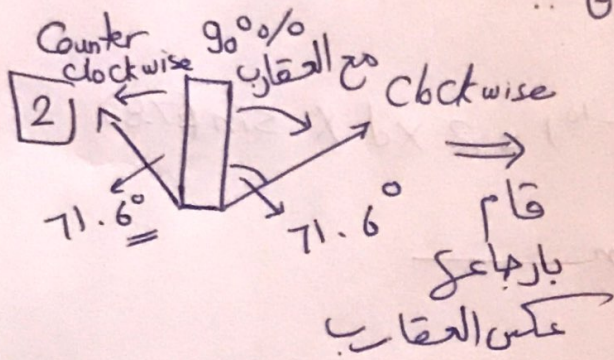 Counter
clockwise
90°%
مع العقارب
Clockwise
2
71.6°
71.6°
قام
بارجاعع
عكس العقارب